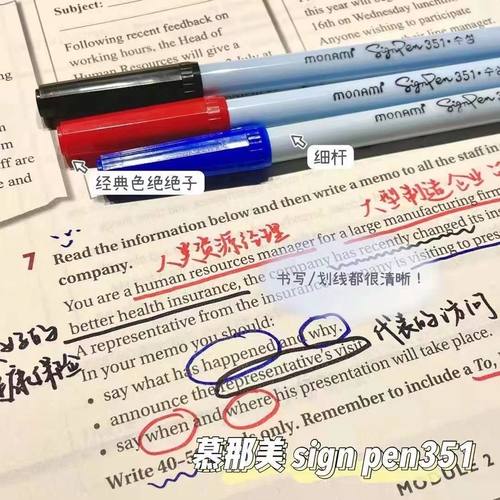 Subject:
Following recent feedback on
working hours, the Head of
Human Resources will give a
this year will
16th on Wednesday lunchtime
Anyone wishing to participate
monami SignPen 351·수성
monami SignPen 351·수성
monami SignPen 351
经典色绝绝子
细杆
7 Read the information below and then write a memo to all the staff in
company.
人事资源经理
大型制造企业
You are a human resources manager for a large manufacturing firm
better health insurance, the company has recently changed its in
书写/划线都很清晰！
A representative from the insurance company is visiting to prese
In your memo you should:
• say what has happened and why.
• announce the representative's visit
代表的访问
• say when and where his presentation will take place.
Write 40-5 only. Remember to include a To,
慕那美 sign pen351
MODULE 2